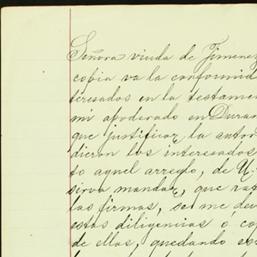 Señora viuda de Jimenez
copia va la conformid
teresados en la testamen
mi apoderado en Duran
que justificaz la autor
dieron los interesados
to aquel arreglo, de U.
sirva mandar, que
las firmas, se me
estas diligencias ó co
de ellas, quedando